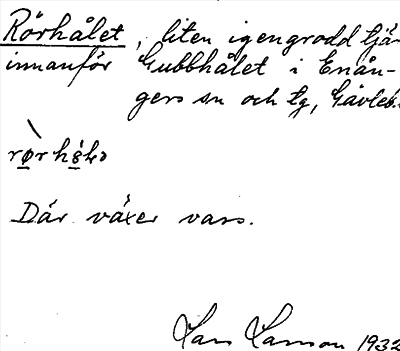 Rörhålet, liten igengrodd tjär
innanför Gubbhålet i Enån-
gers sn och tg, Gävleb.
Där växer vass.
Lars Larson 1932